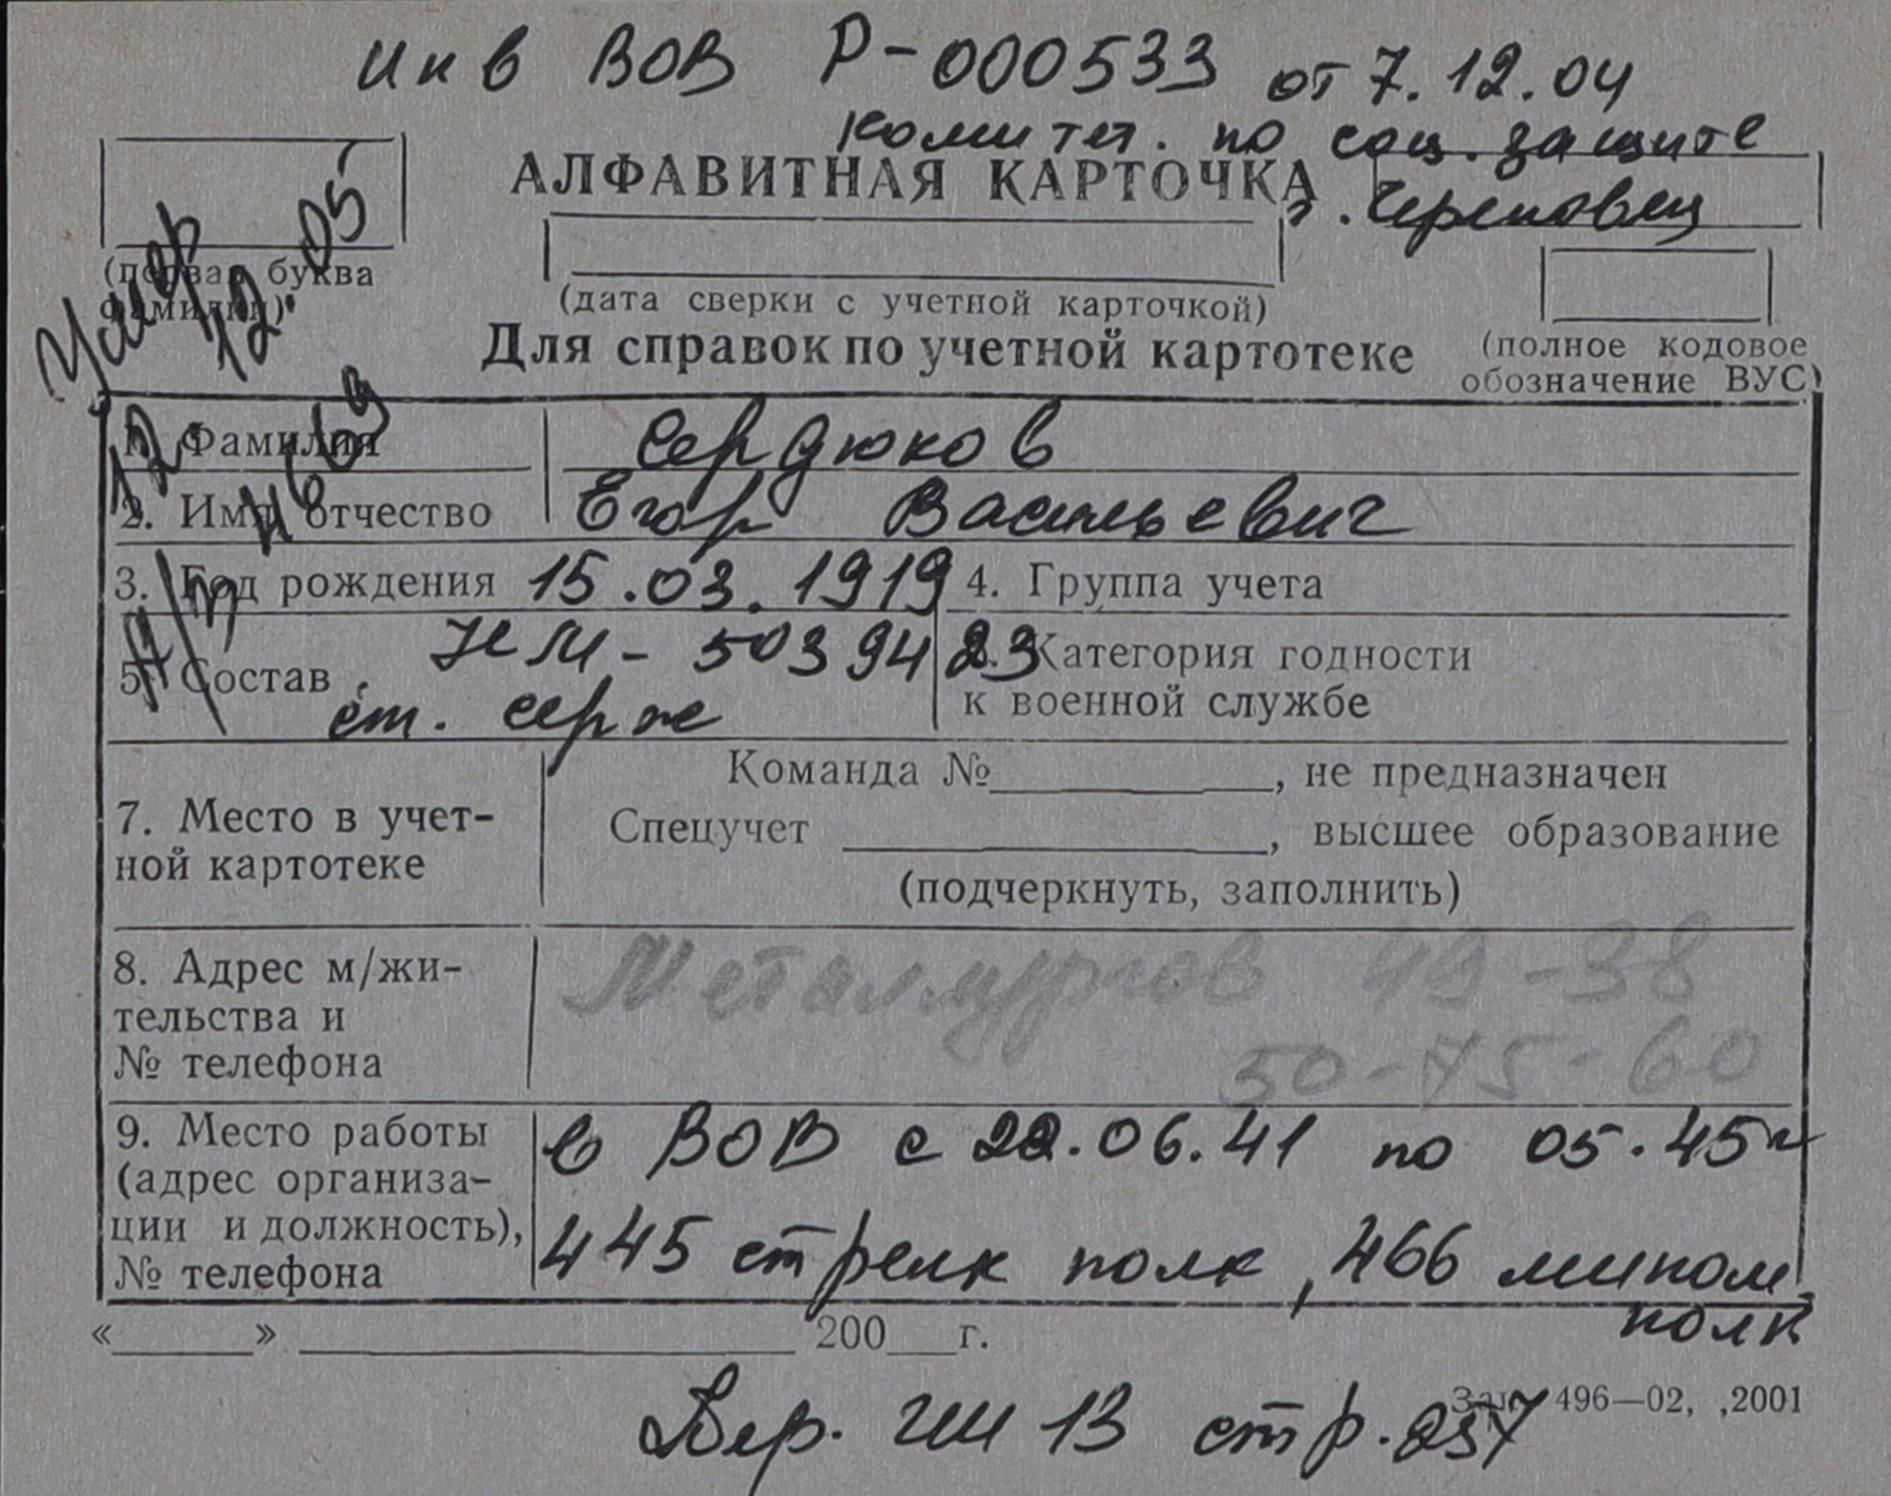 Инв ВОВ Р-000533 от 7.12.04
комитет. по соц. защите
АЛФАВИТНАЯ КАРТОЧКА
г. Череповец
(первая буква
фамилии)
(дата сверки с учетной карточкой)
Для справок по учетной картотеке
(полное кодовое
обозначение ВУС)
Умер
12.05
1. Фамилия Сердюков
2. Имя отчество Егор Васильевич
3. Год рождения 15.03.1919 4. Группа учета
5. Состав НМ-5039423 6. Категория годности
ст. серж к военной службе
7. Место в учет-
ной картотеке
Команда №, не предназначен
Спецучет, высшее образование
(подчеркнуть, заполнить)
8. Адрес м/жи-
тельства и
№ телефона
Металлургов 49-38
50-75-60
9. Место работы
(адрес организа-
ции и должность),
№ телефона
в ВОВ с 22.06.41 по 05.45г
445 стрелк полк, 466 мином.
полк
« » 200 г.
Зак. 496—02, ,2001
13 стр. 237